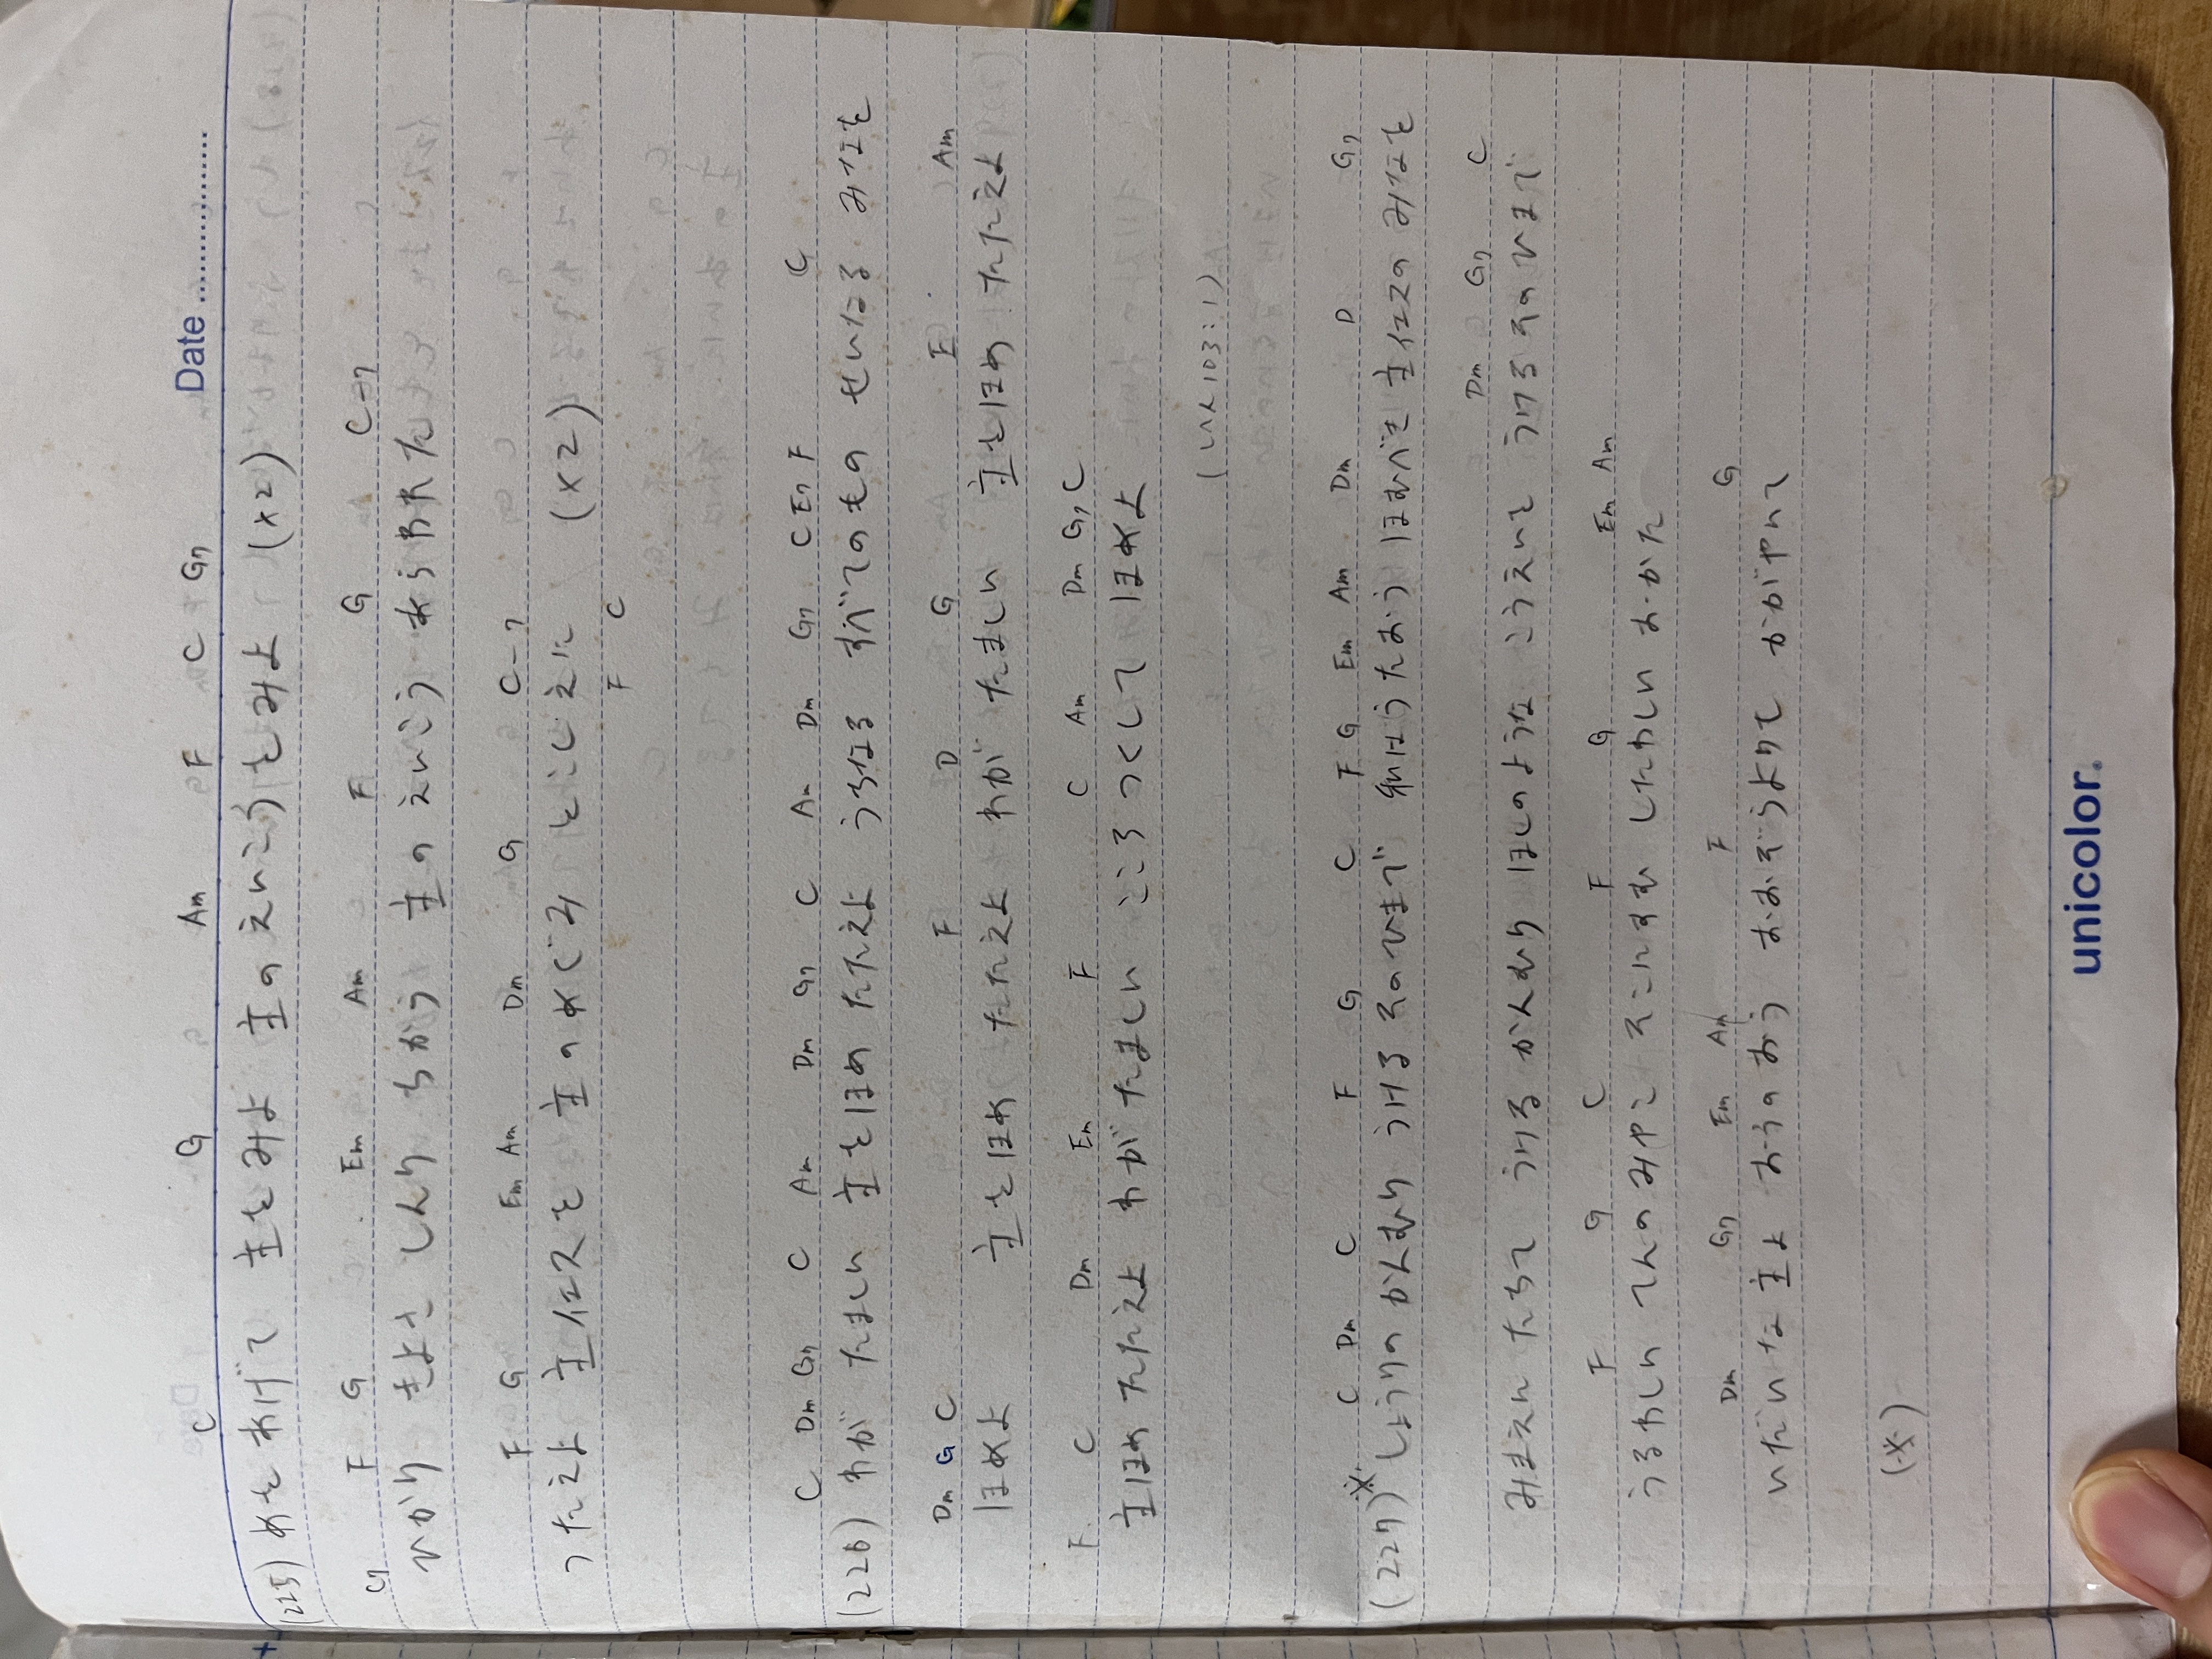 Date
C G Am F C G7
(225) めをあげて 主をみよ 主のえいこうをみよ (×2)
G7 F G Em Am F G C→7
ひかり きよさ しんり ちから 主のえいこう あらわれた
F G Em Am Dm G C-7
つたえよ 主イエスを 主のめぐみ とこしえに (×2)
F C
C Dm G7 C Am Dm G7 C Am Dm G7 C E7 F C
(226) わが たましい 主をほめ たたえよ うちなる すべてのもの せいなる みなを
Dm G C F D G E Am
ほめよ 主をほめ たたえよ わが たましい 主をほめ たたえよ
F C Dm Em F C Am Dm G7 C
主ほめ たたえよ わが たましい こころ つくして ほめよ
(しへ103:1)
※ C Dm C F G C F G Em Am Dm D G7
(227) しょうりの かんむり うける そのひまで われはうたおう ほむべき 主イエスの みなを
Dm G7 C
みまえに たちて うける かんむり ほしのような こうえいを うける そのひまで
F G C F G Em Am
うるわしい てんのみやこ そこにすむ したわしい おかた
Dm G7 Em Am F G
いだいな 主よ おうのおう おおぞらよりも かがやいて
(※)
unicolor.